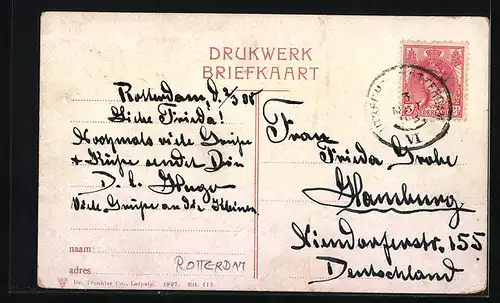 DRUKWERK
BRIEFKAART
Rotterdam, d. 2/5 08
Liebe Frieda!
Nochmals viele Grüße
+ Küsse sendet Dir
D. l. Hugo
Viele Grüße an die Kleinen
Frau
Frieda Grohe
Hamburg
Niendorferstr. 155
Deutschland
naam
adres
ROTTERDAM
Dr. Trenkler Co., Leipzig. 1907. Rtt. 113.